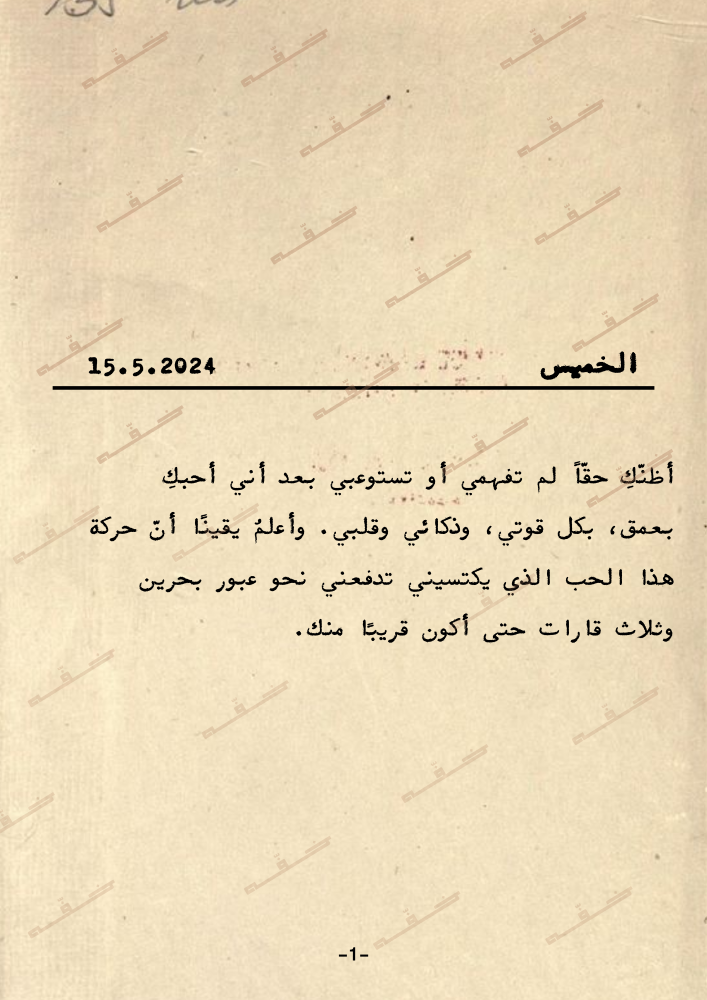 الخميس 15.5.2024
أظنّكِ حقّاً لم تفهمي أو تستوعبي بعد أني أحبكِ
بعمق، بكل قوتي، وذكائي وقلبي. وأعلمُ يقينًا أنّ حركة
هذا الحب الذي يكتسيني تدفعني نحو عبور بحرين
وثلاث قارات حتى أكون قريبًا منك.
-1-